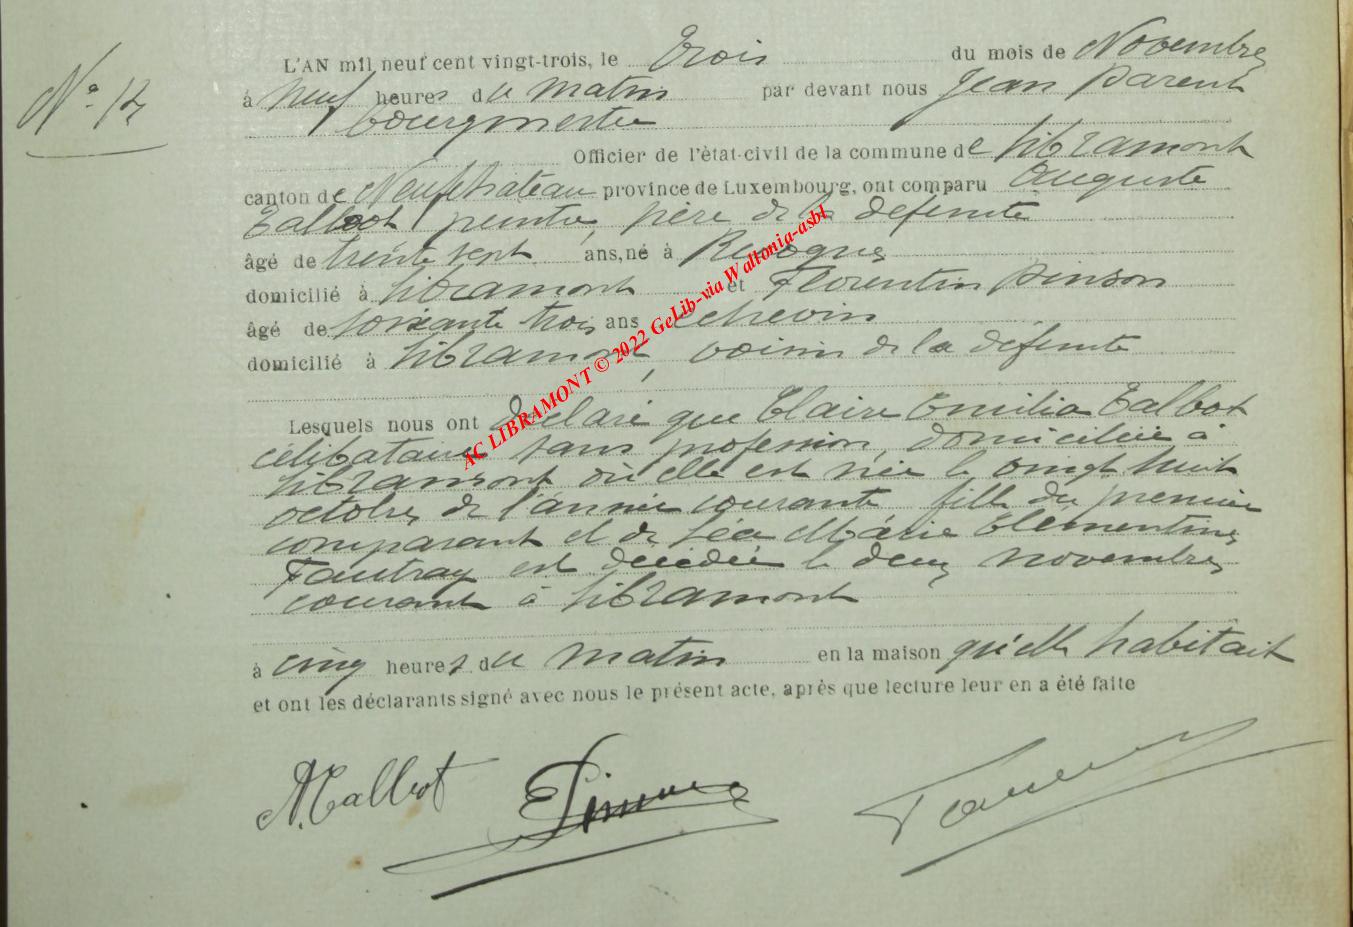 N° 12
L'AN mil neuf cent vingt-trois, le trois du mois de Novembre
à neuf heures du matin par devant nous Jean Parent
bourgmestre
Officier de l'état-civil de la commune de Libramont
canton de Neufchateau province de Luxembourg, ont comparu Auguste
Talbot, peintre, père de la défunte
âgé de trente sept ans, né à Recogne
domicilié à Libramont et Florentin Pinson
âgé de soixante trois ans echevin
domicilié à Libramont, voisin de la défunte
Lesquels nous ont déclaré que Claire Emilia Talbot
célibataire, sans profession, domiciliée à
Libramont où elle est née le vingt huit
octobre de l'année courante fille du premier
comparant et de Léa Marie Clémentine
Fautray est décédée le deux novembre
courant à Libramont
à cinq heures du matin en la maison qu'elle habitait
et ont les déclarants signé avec nous le présent acte, après que lecture leur en a été faite
A. Talbot
AC LIBRAMONT © 2022 GeLib-via Waltonia-asbl